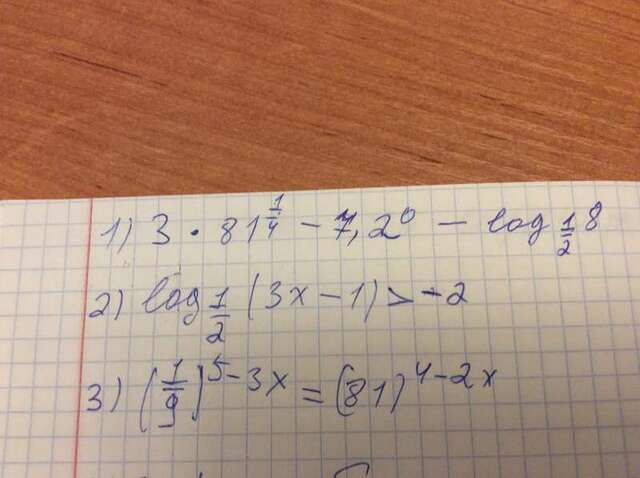 1) 3 · 81^(1/4) − 7,2⁰ − log_(1/2) 8
2) log_(1/2) (3x − 1) > −2
3) (1/9)^(5−3x) = (81)^(4−2x)